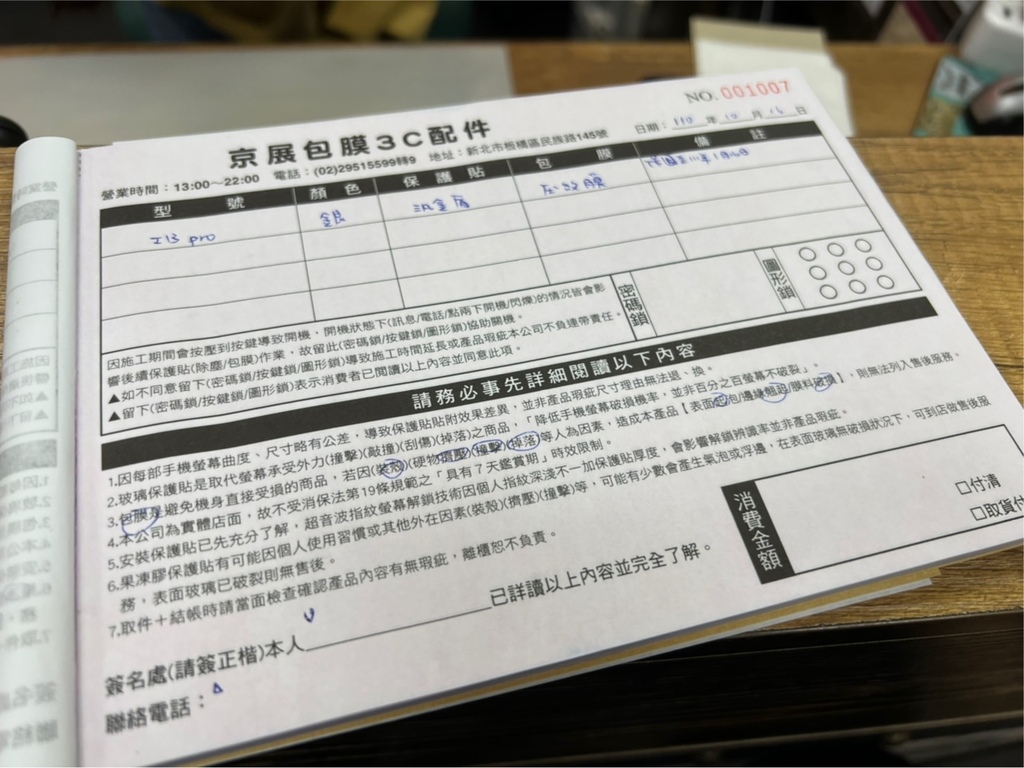 NO. 001007
京展包膜3C配件
日期： 110 年 10 月 日
營業時間：13:00～22:00 電話：(02)29515599轉9 地址：新北市板橋區民族路145號
型號 顏色 保護貼 包膜 備註
I13 pro 銀 滿 膜
因施工期間會按壓到按鍵導致開機，開機狀態下(訊息/電話/點兩下開機/閃爍)的情況皆會影
響後續保護貼(除塵/包膜)作業，故留此(密碼鎖/按鍵鎖/圖形鎖)協助關機。
▲如不同意留下(密碼鎖/按鍵鎖/圖形鎖)導致施工時間延長或產品瑕疵本公司不負連帶責任。
▲留下(密碼鎖/按鍵鎖/圖形鎖)表示消費者已閱讀以上內容並同意此項。
密碼鎖
圖形鎖
請務必事先詳細閱讀以下內容
1.因每部手機螢幕曲度、尺寸略有公差，導致保護貼貼附效果差異，並非產品瑕疵尺寸理由無法退、換。
2.玻璃保護貼是取代螢幕承受外力(撞擊)(敲撞)(刮傷)(掉落)之商品，「降低手機螢幕破損機率，並非百分之百螢幕不破裂」。
3.包膜是避免機身直接受損的商品，若因(裝殼)(硬物擠壓)(撞擊)(掉落)等人為因素，造成本產品【表面 包/邊緣翹起/顏料 】，則無法列入售後服務。
4.本公司為實體店面，故不受消保法第19條規範之「具有7天鑑賞期」時效限制。
5.安裝保護貼已先充分了解，超音波指紋螢幕解鎖技術因個人指紋深淺不一加保護貼厚度，會影響解鎖辨識率並非產品瑕疵。
6.果凍膠保護貼有可能因個人使用習慣或其他外在因素(裝殼)(擠壓)(撞擊)等，可能有少數會產生氣泡或浮邊，在表面玻璃無破損狀況下，可到店做售後服
務，表面玻璃已破裂則無售後。
7.取件＋結帳時請當面檢查確認產品內容有無瑕疵，離櫃恕不負責。
消費金額
□付清
□取貨付
簽名處(請簽正楷)本人 已詳讀以上內容並完全了解。
聯絡電話：